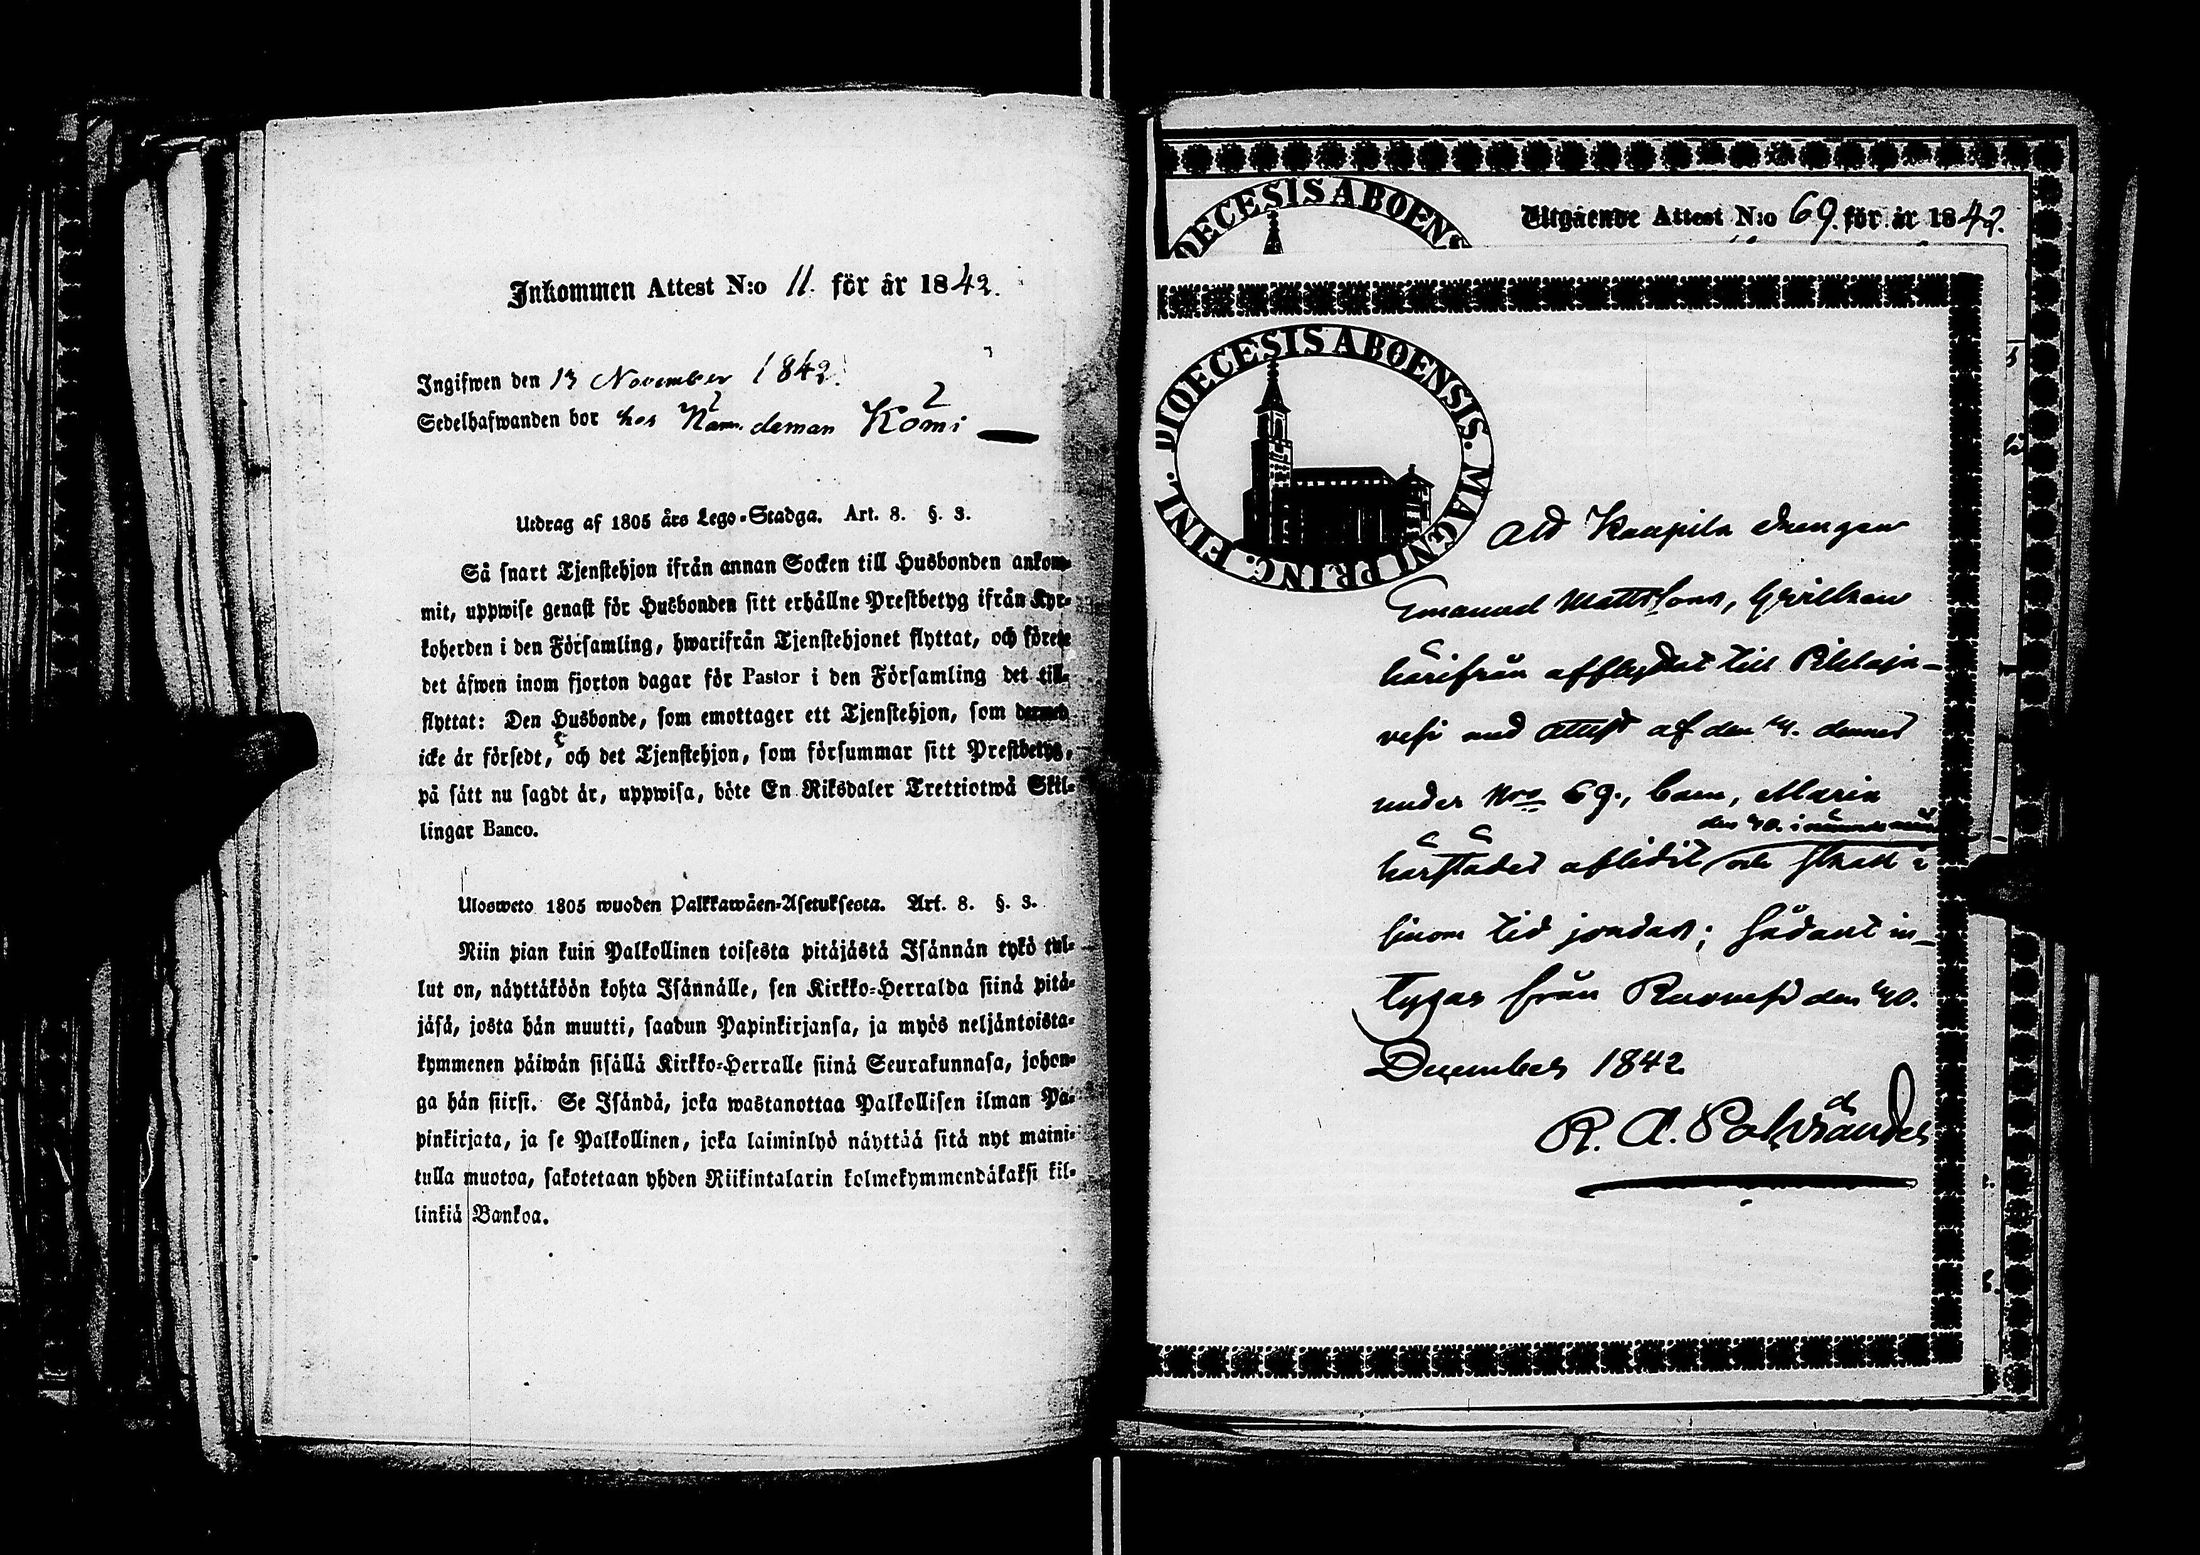 Inkommen Attest N:o 11. för år 1842.
Ingifwen den 13 November 1842.
Sedelhafwanden bor hos Nämndeman Kömi
Utdrag af 1805 års Lego-Stadga. Art. 8. §. 3.
Så snart Tjenstehjon ifrån annan Socken till Husbonden ankom-
mit, uppwise genast för Husbonden sitt erhållne Prestbetyg ifrån Kyr-
koherden i den Församling, hwarifrån Tjenstehjonet flyttat, och förete
det äfwen inom fjorton dagar för Pastor i den Församling det till-
flyttat: Den Husbonde, som emottager ett Tjenstehjon, som dermed
icke är försedt, och det Tjenstehjon, som försummar sitt Prestbetyg,
på sätt nu sagdt är, uppwisa, böte En Riksdaler Trettiotwå Skil-
lingar Banco.
Ulosweto 1805 wuoden Palkkawäen-Asetuksesta. Art. 8. §. 3.
Niin pian kuin Palkollinen toisesta pitäjästä Isännän tykö tul-
lut on, näyttäköön kohta Isännälle, sen Kirkko-Herralda siinä pitä-
jäsä, josta hän muutti, saadun Papinkirjansa, ja myös neljäntoista-
kymmenen päiwän sisällä Kirkko-Herralle siinä Seurakunnasa, johon-
ga hän siirsi. Se Isändä, joka wastanottaa Palkollisen ilman Pa-
pinkirjata, ja se Palkollinen, joka laiminlyö näyttää sitä nyt maini-
tulla muotoa, sakotetaan yhden Riikintalarin kolmekymmendäkaksi kil-
linkiä Bankoa.
DIOECESIS ABOENS
Utgående Attest N:o 69. för år 1842.
DIOECESIS ABOENSIS. MAGNI PRINC. FINL.
Att Kaapila drengen
Emanuel Mattsons, hvilken
härifrån afflyttat till Pihlaja-
vesi med attest af den 14. dennes
under Nro 69., barn, Maria
den 20. i
härstädes aflidit och skall i
sinom tid jordas; sådant in-
tygas från Ruovesi den 20.
December 1842
R. A.